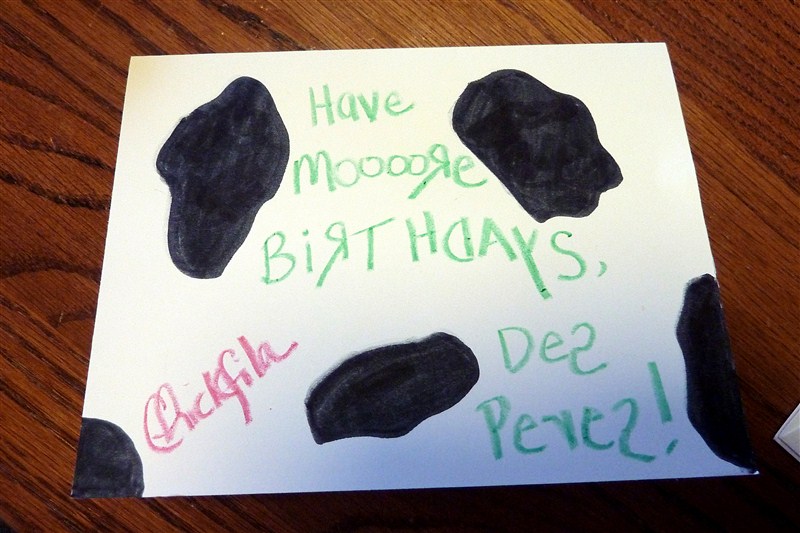 Have
MooooЯe
BiЯTHDAYS,
Des
Peres!
Chickfila